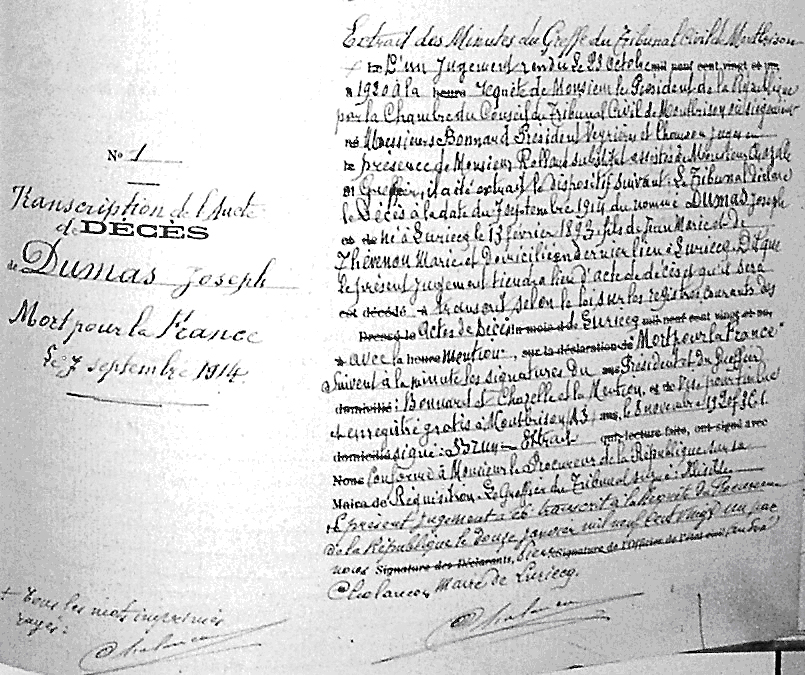 N° 1
Transcription de l'Acte
de DÉCÈS
de Dumas Joseph
Mort pour la France
Le 7 septembre 1914.
+ tous les mots imprimés
rayés:
Cholancon
Extrait des Minutes du Greffe du Tribunal Civil de Montbrison
+ Le D'un Jugement rendu le 29 Octobre mil neuf cent vingt et un
à 1920 à la heure requête de Monsieur le Président de la République
par la Chambre du Conseil du Tribunal Civil de Montbrison où siégeaient
né Messieurs Bonnard Président Veyrière et Chausson juges en
le présence de Monsieur Rolland substitut assistés de Monsieur Chapelle
Greffier, il a été extrait le dispositif suivant: Le Tribunal déclare
le Décès à la date du 7 septembre 1914 du nommé Dumas Joseph
né à Luriecq le 13 février 1893, fils de Jean Marie et de
Thévenon Marie et Domicilié en dernier lieu à Luriecq. Dit que
le présent jugement tiendra lieu d'acte de décès et qu'il sera
est décédé à transcrit selon la loi sur les registres courants des
Dressé le Actes de Décès mois d de Luriecq mil neuf cent vingt et un,
à avec la heure Mention, sur la déclaration de "Mort pour la France"
Suivent à la minute les signatures du Président et du Greffier
domicilié: Bonnard et Chapelle et la Mention, et de Visé pour timbre
et enregistré gratis à Montbrison ans, le 8 novembre 1920
domicilié signé: Extrait qui, lecture faite, ont signé avec
Nous Conforme à Monsieur le Procureur de la République sur sa
Maire de Réquisition. Le Greffier du Tribunal signé:
Le présent jugement a été transcrit à la Requête du Procureur
de la République le douze janvier mil neuf cent vingt un par
nous Signature des Déclarants, Signature de l'Officier de l'état civil
Cholancon, Maire de Luriecq.
Cholancon